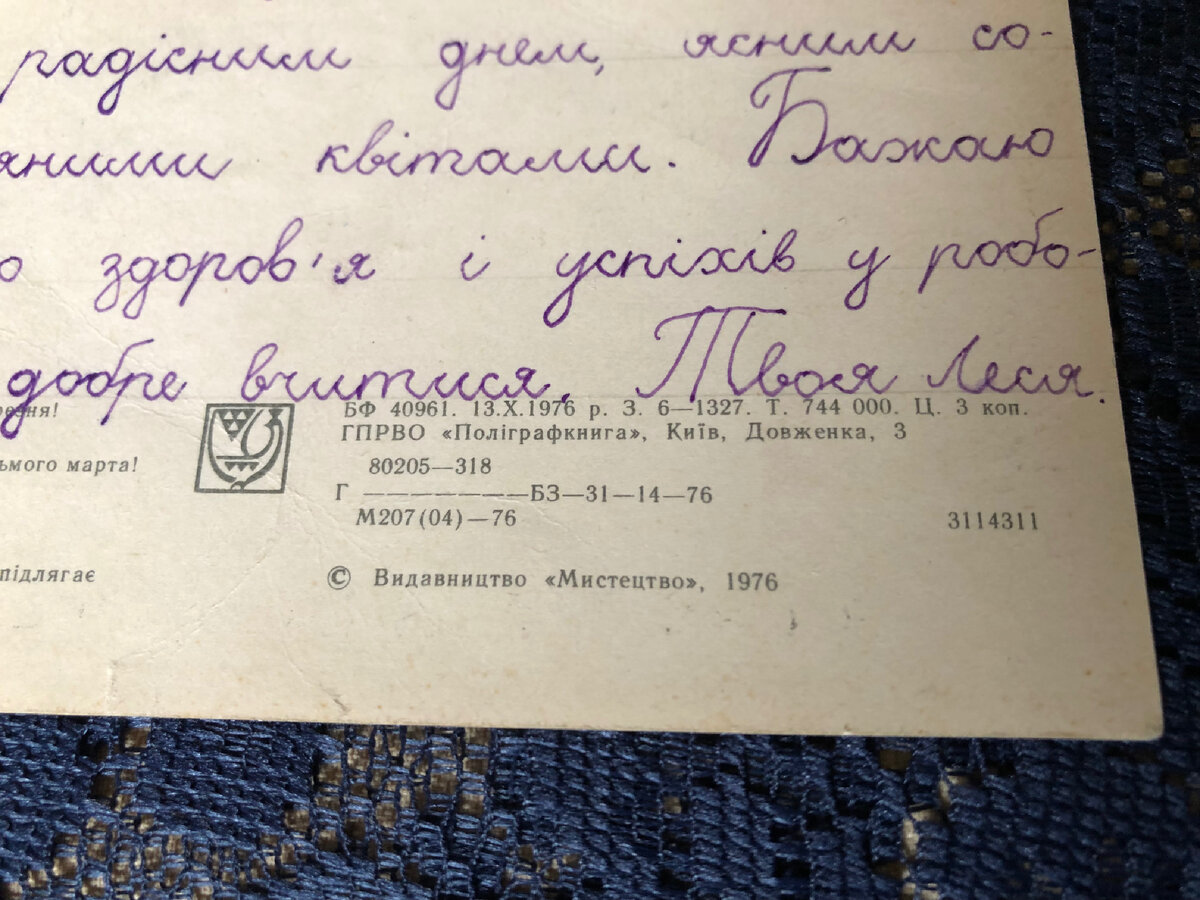 радісним днем, ясним со-
яними квітами. Бажаю
о здоров'я і успіхів у робо-
добре вчитися. Твоя Леся.
резня!
БФ 40961. 13.X.1976 р. З. 6—1327. Т. 744 000. Ц. 3 коп.
ГПРВО «Поліграфкнига», Київ, Довженка, 3
ьмого марта!
80205—318
Г ———————БЗ—31—14—76
М207(04)—76
3114311
підлягає
© Видавництво «Мистецтво», 1976